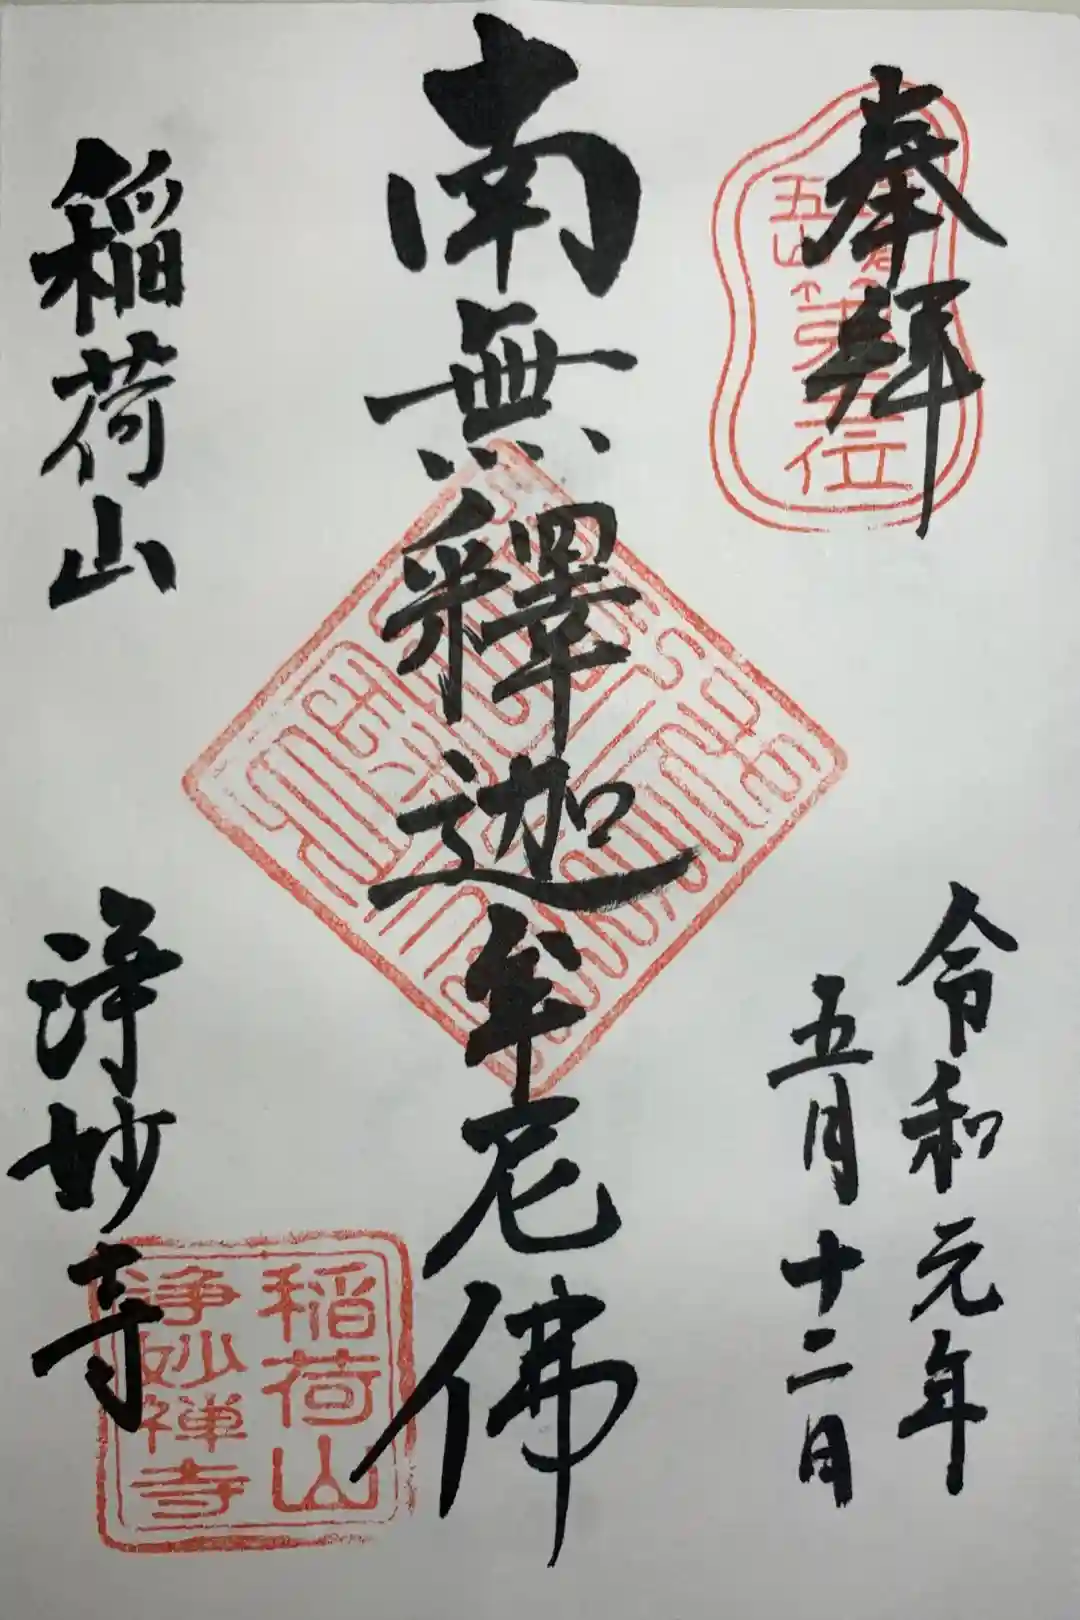 奉拝
令和元年
五月十二日
南無釋迦牟尼佛
稲荷山
浄妙寺
五山
第五位
稲荷山
浄妙禅寺